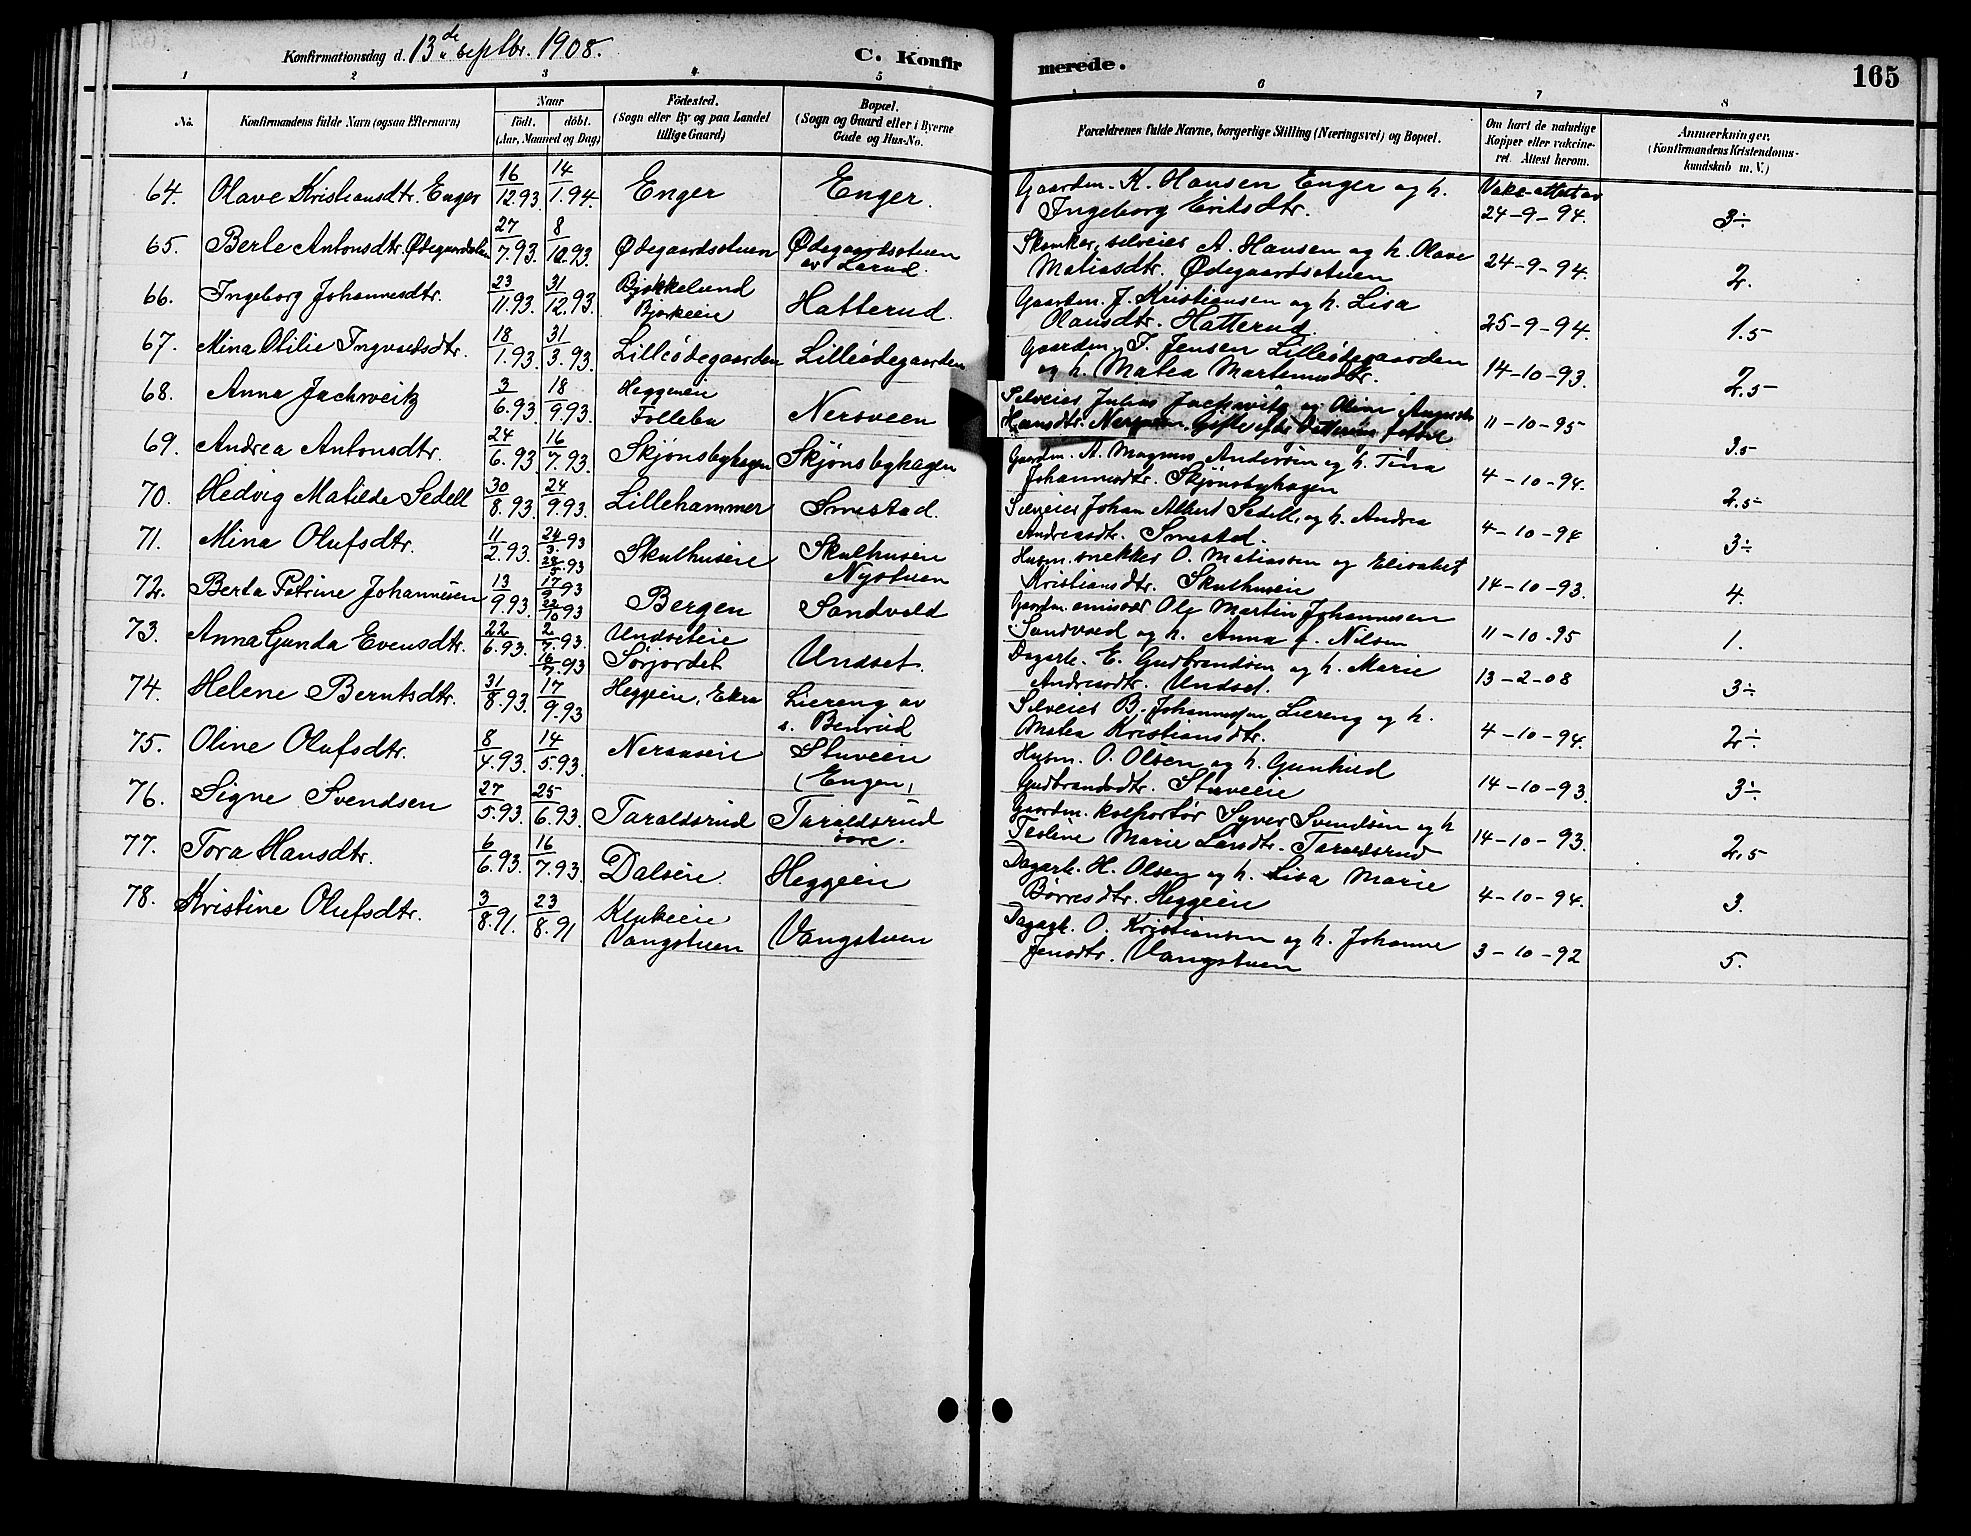 Konfirmationsdag d. 13de septbr. 1908.
C. Konfir
merede.
165
1 2 3 4 5 6 7 8
No.
Konfirmandens fulde Navn (ogsaa Efternavn)
Naar
født. døbt.
(Aar, Maaned og Dag)
Fødested.
(Sogn eller By og paa Landet
tillige Gaard)
Bopæl.
(Sogn og Gaard eller i Byerne
Gade og Hus-No.
Forældrenes fulde Navne, borgerlige Stilling (Næringsvei) og Bopæl.
Om havt de naturlige
Kopper eller vakcine-
ret. Attest herom.
Anmærkninger.
(Konfirmandens Kristendoms-
kundskab m. V.)
64. Olave Kristiansdtr. Enger 16/12.93. 14/1.94. Enger Enger. Gaardm. K. Hansen Enger og h. Vakc. attest av
Ingeborg Eriksdtr. 24-9-94. 3÷
65. Berte Antonsdtr. Ødegaardstuen 27/7.93 8/10.93. Ødegaardsstuen Ødegaardsstuen Selveier A. Hansen og h. Olave
av Larud. Matiasdtr. Ødegaardsstuen 24-9-94. 2.
66. Ingeborg Johannesdtr. 23/11.93. 31/12.93. Bjørkelund Gaardm. J. Kristiansen og h. Lisa
Bjørkeeie Hatterud. Olausdtr. Hatterud. 25-9-94. 1.5
67. Mina Otilie Ingvaldsdtr. 18/1.93. 31/3.93. Lilleødegaarden Lilleødegaarden Gaardm. I. Jensen Lilleødegaarden
og h. Matea Martinusdtr. 14-10-93. 2.5
68. Anna Jachweitz 3/6.93. 18/9.93. Heggeeie Selveier Julius Jachwitz og Oline Augusta
Follebu Nersveen Hansdtr. Nersveen. 11-10-95 3.5
69. Andrea Antonsdtr. 24/6.93. 16/7.93. Skjønsbyhagen Skjønsbyhagen. Gaardm. A. Magnus Andersen og h. Tina
Johannesdtr. Skjønsbyhagen 4-10-94. 2.5
70. Hedvig Matilde Sedell 30/8.93. 24/9.93. Lillehammer Smestad. Selveier Johan Albert Sedell, og h. Andrea
Andreasdtr. Smestad. 4-10-94 3÷
71. Mina Olufsdtr. 11/2.93. 24/3.93 Skulhuseie Skulhuseie Husm. snekker O. Matiassen og Elisabet
28/5.93 Nystuen Kristiansdtr. Skulhuseie 14-10-93. 4.
72. Berta Petrine Johannesen 13/9.93. 17/9.93 22/10.93 Bergen Sandvold Gaardm. emissær Ole Martin Johannesen
Sandvold og h. Anna f. Nilsen 11-10-95 1.
73. Anna Gunda Evensdtr. 22/6.93. 2/7.93. Undseteie Undset. Dagarb. E. Gudbrandsen og h. Marie
16/7.93 Sørjordet Andreasdtr. Undset. 13-2-08 3÷
74. Helene Berntsdtr. 31/8.93. 17/9.93 Heggeeie, Ekra Liereng av Selveier B. Johannessen Liereng og h.
s. Benrud Matea Kristiansdtr. 4-10-94. 2÷
75. Oline Olufsdtr. 8/4.93. 14/5.93. Neraaseie Stuveeie Husm. O. Olsen og h. Gunhild
(Engen) Gudbrandsdtr. Stuveeie 14-10-93. 3÷
76. Signe Svendsen 27/5.93. 25/6.93. Taraldsrud Taraldsrud Gaardm. kolportør Syver Svendsen og h
øvre. Teoline Marie Larsdtr. Taraldsrud 14-10-93. 2.5
77. Tora Hansdtr. 6/6.93. 16/7.93. Dalseie. Heggeeie Dagarb. H. Olsen og h. Lisa Marie
Børresdtr. Heggeeie 4-10-94. 3.
78. Kristine Olufsdtr. 3/8.91. 23/8.91 Klukeeie Dagarb. O. Kristiansen og h. Johanne
Vangstuen Vangstuen Jensdtr. Vangstuen 3-10-92 5.